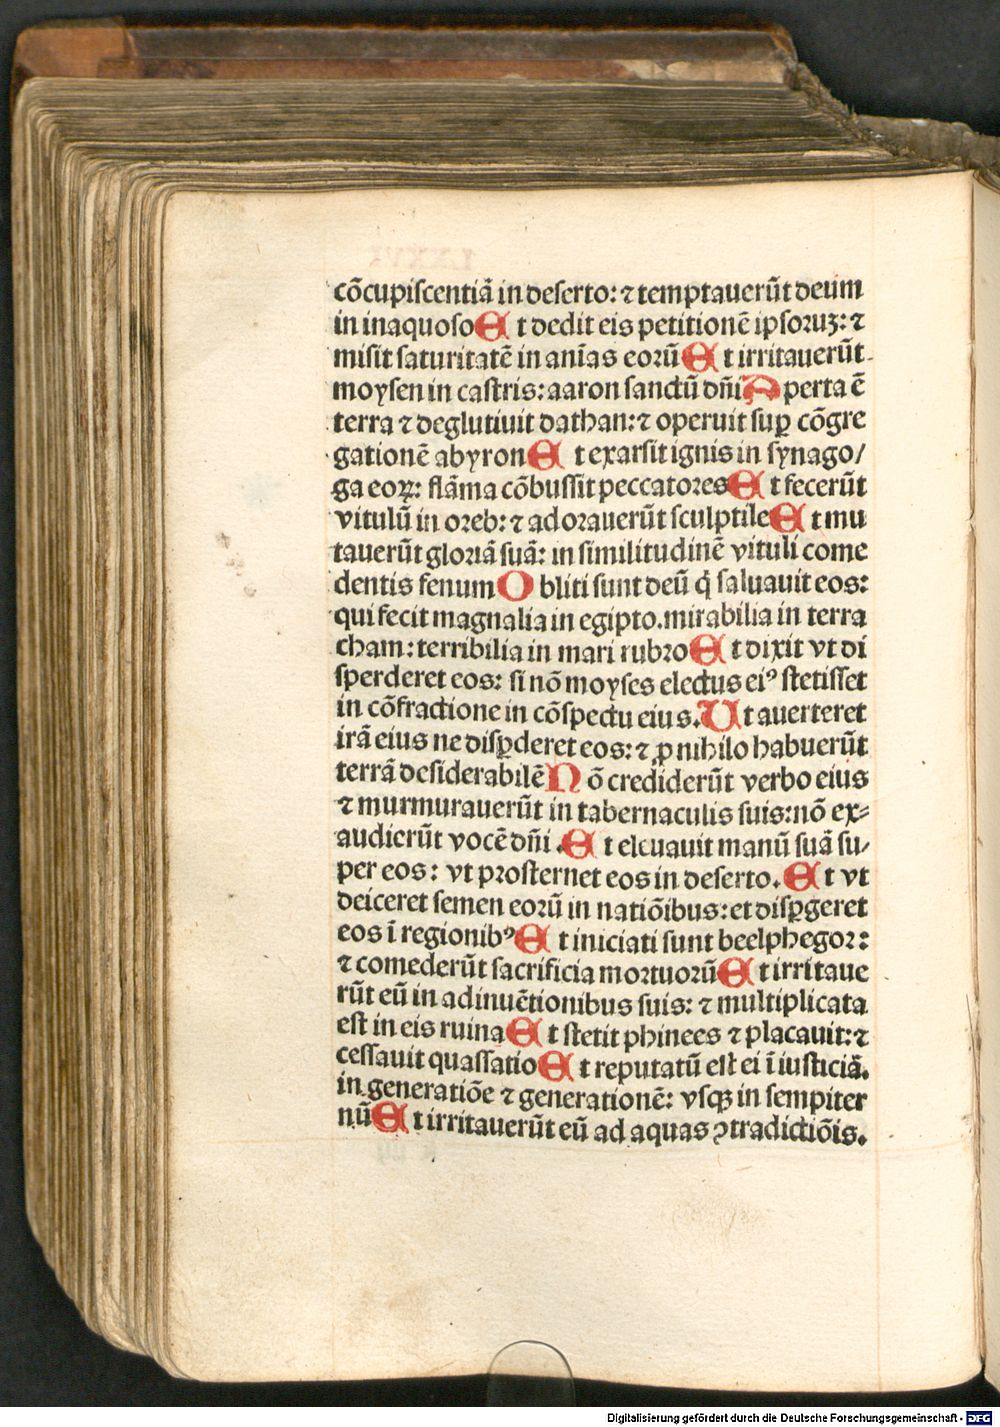 cōcupiscentiā in deserto: ⁊ temptauerūt deum
in inaquoso Et dedit eis petitionē ipsoꝛuꝫ: ⁊
misit saturitatē in anīas eorū Et irritauerūt
moysen in castris: aaron sanctū dn̄i Aperta ē
terra ⁊ deglutiuit dathan: ⁊ operuit suꝑ cōgre
gationē abyron Et exarsit ignis in synago/
ga eoꝝ: flāma cōbussit peccatoꝛes Et fecerūt
vitulū in oꝛeb: ⁊ adoꝛauerūt sculptile Et mu
tauerūt gloꝛiā suā: in similitudinē vituli come
dentis fenum Obliti sunt deū q̇ saluauit eos:
qui fecit magnalia in egipto. mirabilia in terra
cham: terribilia in mari rubꝛo Et dixit vt di
sperderet eos: si nō moyses electus eiꝰ stetisset
in cōfractione in cōspectu eius. Ut auerteret
irā eius ne disꝑderet eos: ⁊ ꝓ nihilo habuerūt
terrā desiderabilē Nō crediderūt verbo eius
⁊ murmurauerūt in tabernaculis suis: nō ex⸗
audierūt vocē dn̄i. Et eleuauit manū suā su/
per eos: vt pꝛosternet eos in deserto. Et vt
deiceret semen eoꝛū in natiōibus: et disꝑgeret
eos ī regionibꝰ Et iniciati sunt beelphegoꝛ:
⁊ comederūt sacrificia moꝛtuoꝛū Et irritaue
rūt eū in adinuētionibus suis: ⁊ multiplicata
est in eis ruina Et stetit phinees ⁊ placauit: ⁊
cessauit quassatio Et reputatū est ei ī iusticiā.
in generatiōe ⁊ generationē: vsqꝫ in sempiter
nū Et irritauerūt eū ad aquas ꝯtradictiōis.
Digitalisierung gefördert durch die Deutsche Forschungsgemeinschaft - DFG